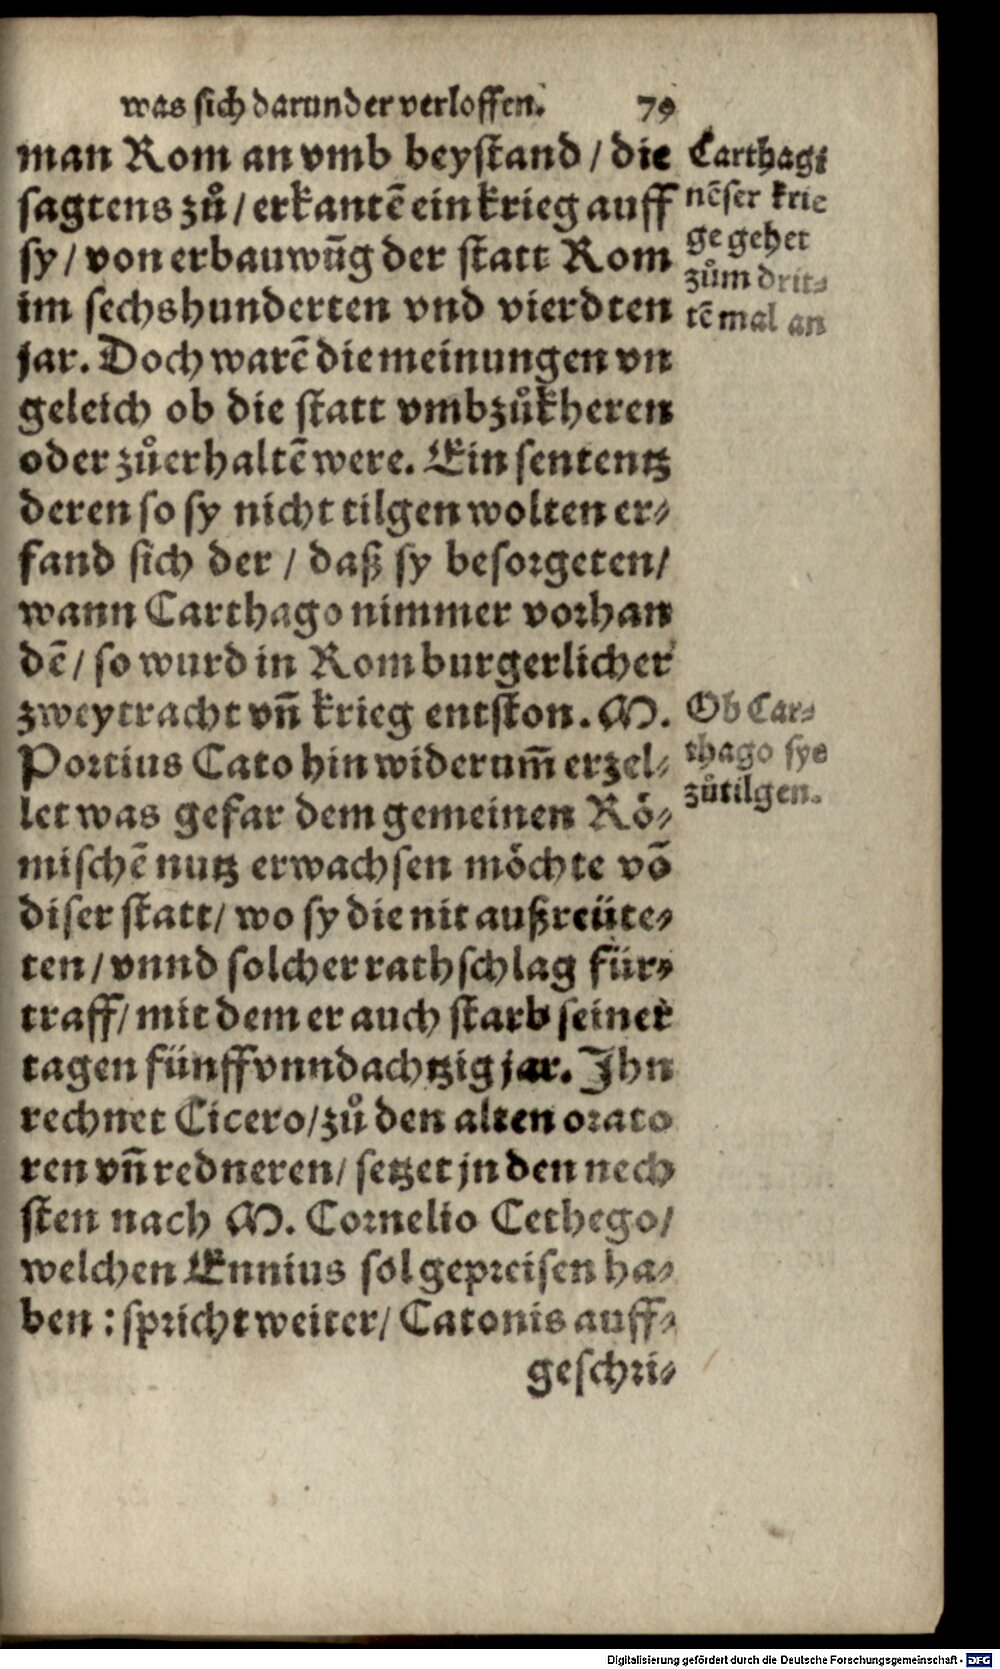 was sich darunder verloffen. 79
man Rom an vmb beystand / die
sagtens zů / erkantē ein krieg auff
sy / von erbauwūg der statt Rom
im sechshunderten vnd vierdten
jar. Doch warē die meinungen vn
geleich ob die statt vmbzůkheren
oder zůerhaltē were. Ein sententz
deren so sy nicht tilgen wolten er⸗
fand sich der / daß sy besorgeten /
wann Carthago nimmer vorhan
dē / so wurd in Rom burgerlicher
zweytracht vn̄ krieg entston. M.
Portius Cato hinwiderum̄ erzel⸗
let was gefar dem gemeinen Rö⸗
mischē nutz erwachsen möchte vō
diser statt / wo sy die nit außreüte⸗
ten / vnnd solcher rathschlag für⸗
traff / mit dem er auch starb seiner
tagen fünffvnndachtzig jar. Ihn
rechnet Cicero / zů den alten orato
ren vn̄ redneren / setzet jn den nech
sten nach M. Cornelio Cethego /
welchen Ennius sol gepreisen ha⸗
ben : spricht weiter / Catonis auff⸗
geschri⸗
Carthagi
nēser krie
ge gehet
zům drit⸗
tē mal an
Ob Car⸗
thago sye
zůtilgen.
Digitalisierung gefördert durch die Deutsche Forschungsgemeinschaft - DFG